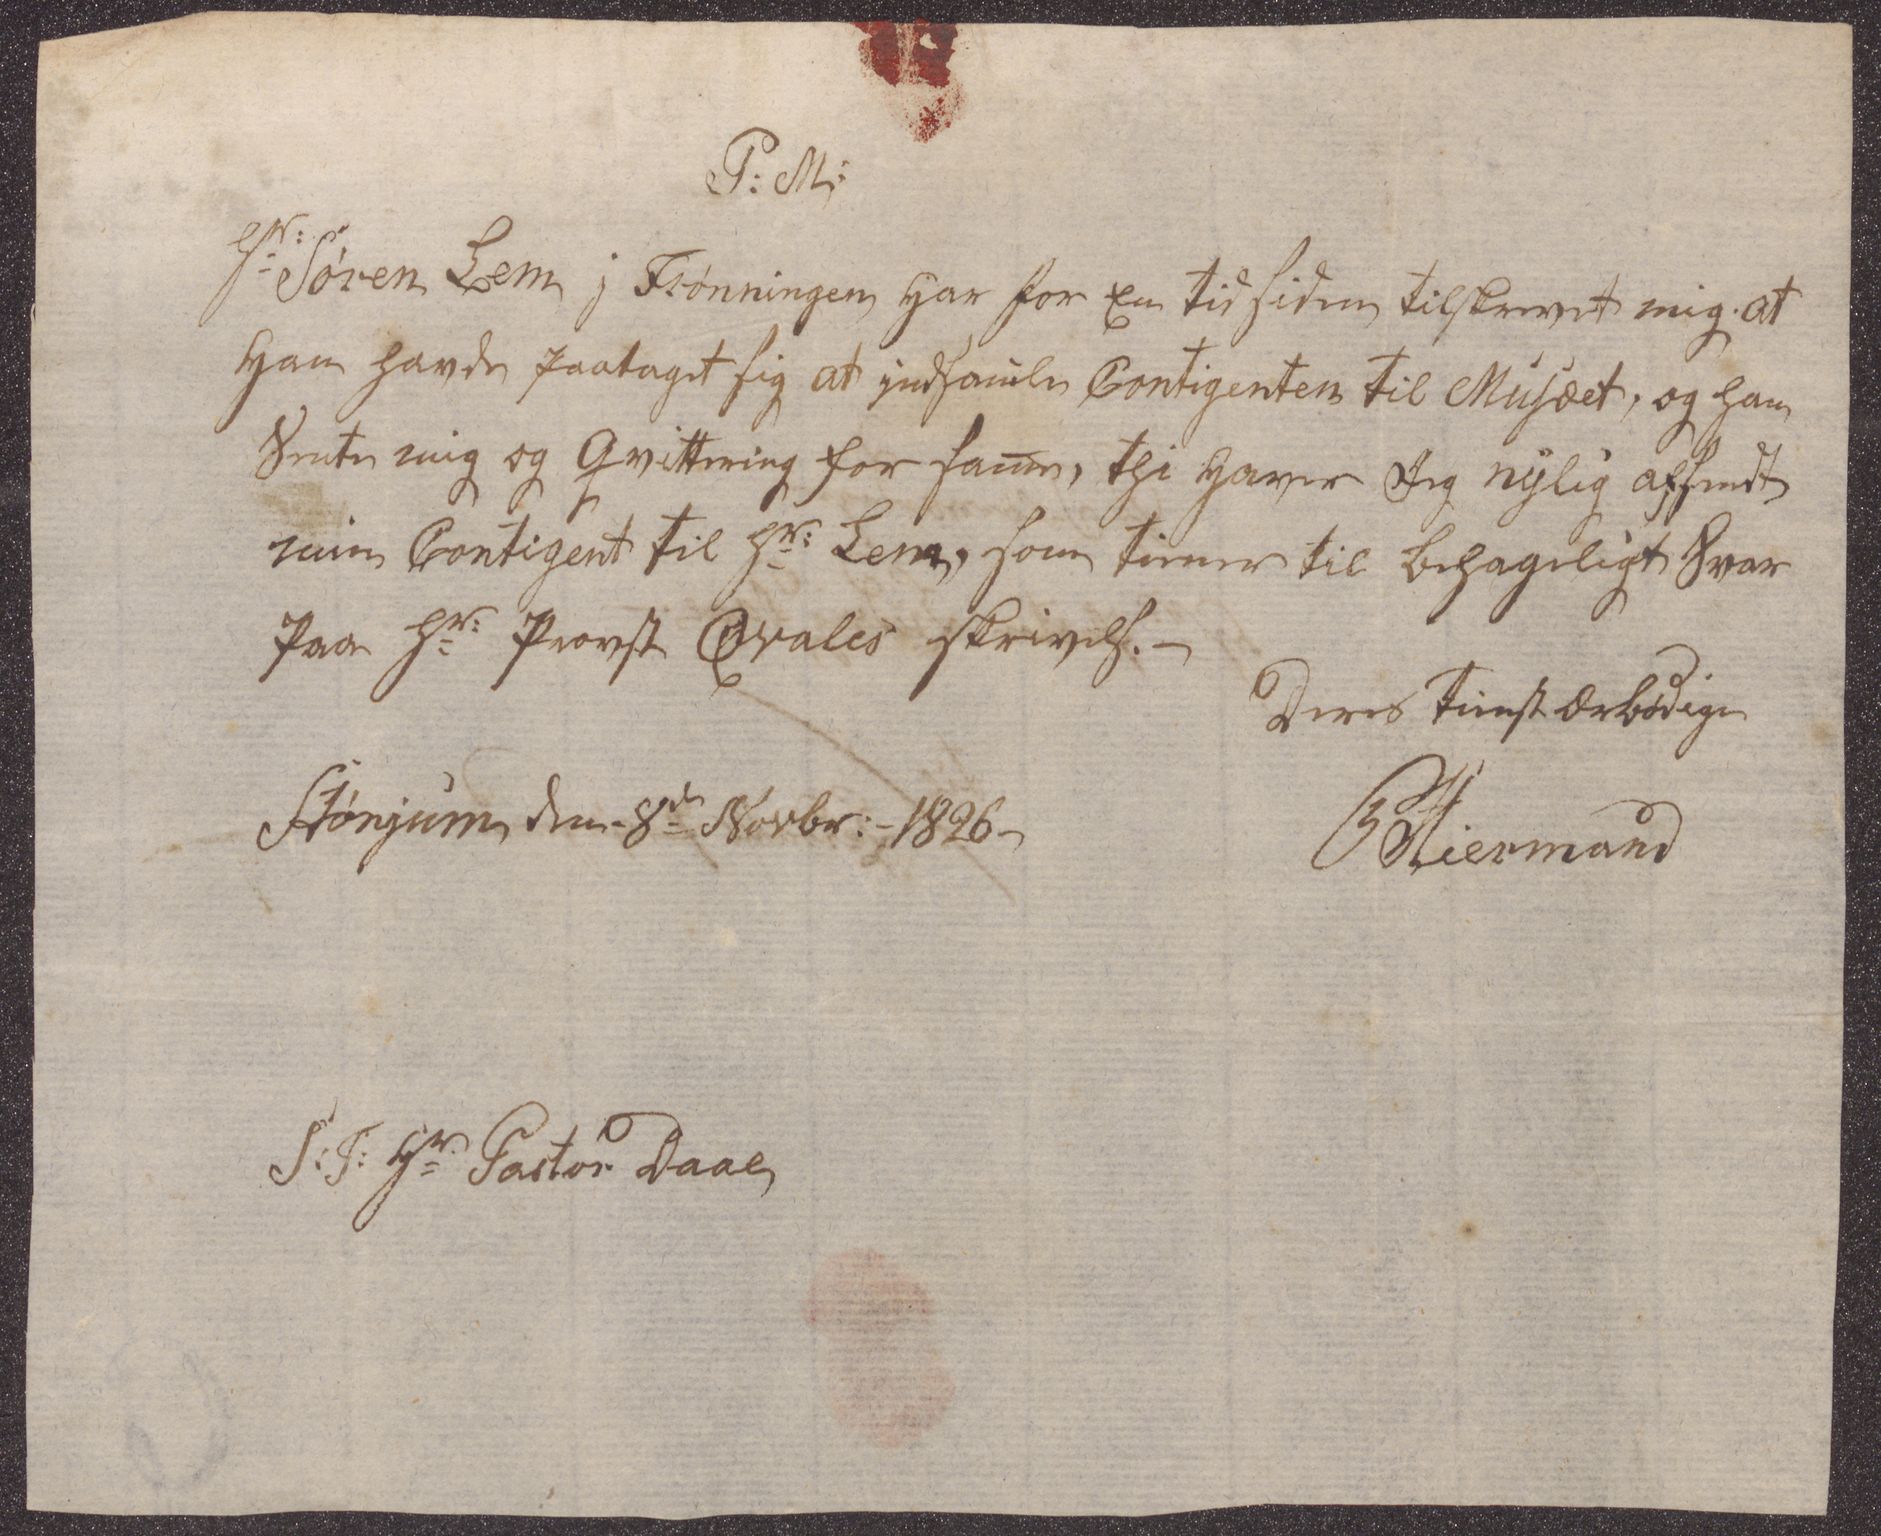 P: M:
Hr: Søren Lem j Frønningen har for En tid siden tilskrevet mig at
han havde paataget sig at jndsamle Contigenten til Musæet, og han
Sente mig og Qvittering for samme, thi haver Jeg nÿlig afsendt
min Contigent til Hr: Lem, som tiener til behageligt Svar
paa Hr: Provst Qvales skrivelse. –
Deres tienst ærbødige
Stønjum den 8de Novbr: 1826
Hiermand
S: T: Hr Pastor Daae